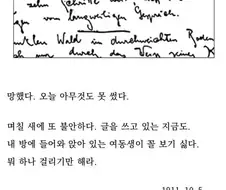 von langweiligen Gespräch.
Wald in durchweichten Boden
nur durch das Weiß seines K
망했다. 오늘 아무것도 못 썼다.
며칠 새에 또 불안하다. 글을 쓰고 있는 지금도.
내 방에 들어와 앉아 있는 여동생이 꼴 보기 싫다.
뭐 하나 걸리기만 해라.
1911. 10. 5.